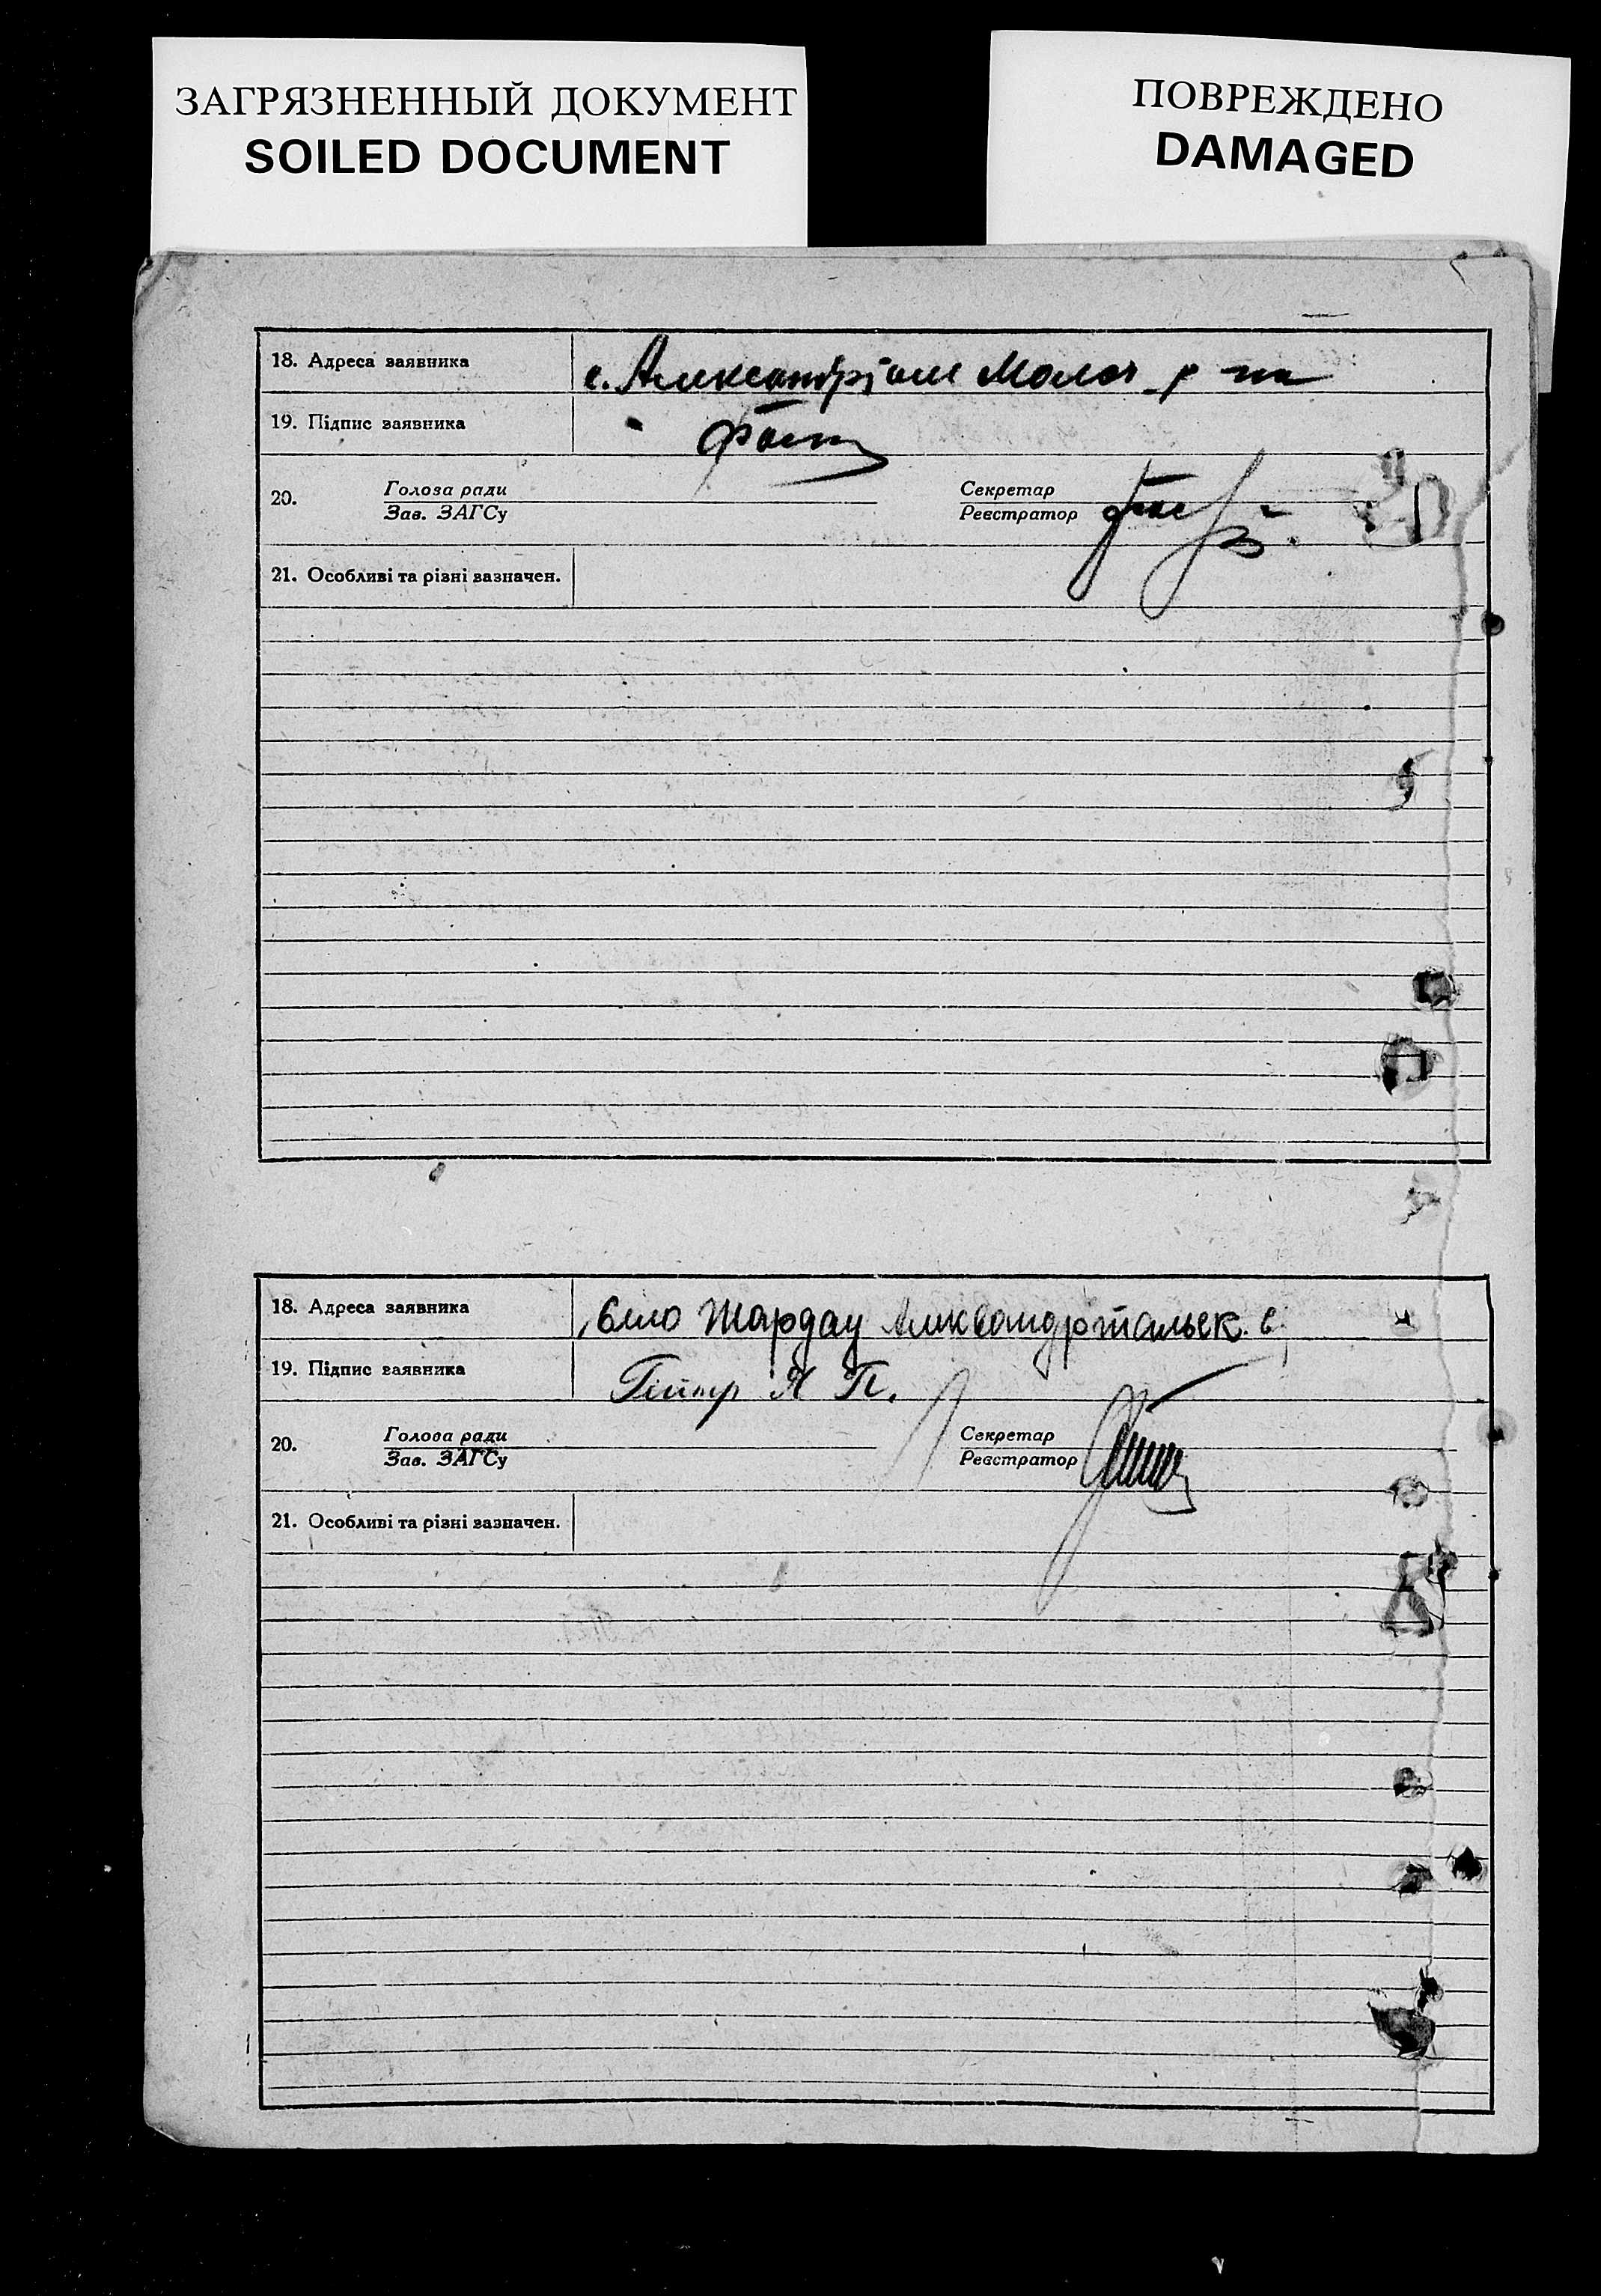 ЗАГРЯЗНЕННЫЙ ДОКУМЕНТ
SOILED DOCUMENT
ПОВРЕЖДЕНО
DAMAGED
18. Адреса заявника
с. Молоч р-на
19. Підпис заявника
20. Голова ради Секретар
Зав. ЗАГСу Реєстратор
21. Особливі та різні зазначен.
18. Адреса заявника
село Шардау с.
19. Підпис заявника
Я П.
20. Голова ради Секретар
Зав. ЗАГСу Реєстратор
21. Особливі та різні зазначен.